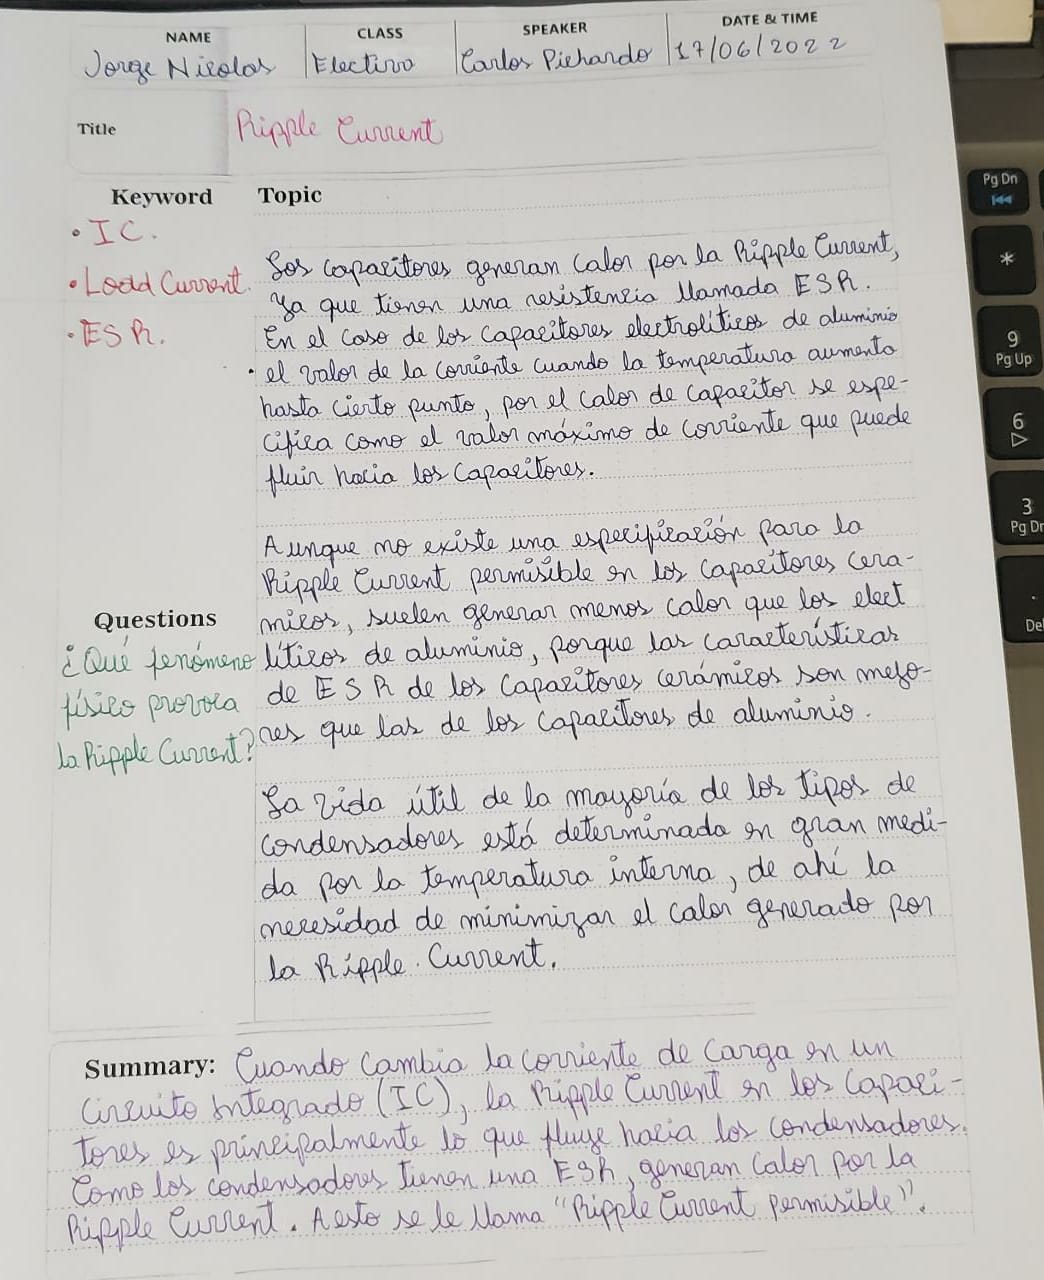 NAME CLASS SPEAKER DATE & TIME
Jorge Nicolas Electivo Carlos Pichardo 17/06/2022
Title Ripple Current
Keyword
• IC.
• Load Current.
• ESR.
Topic
Los capacitores generan calor por la Ripple Current,
ya que tienen una resistencia llamada ESR.
En el caso de los capacitores electrolíticos de aluminio
• el valor de la corriente cuando la temperatura aumenta
hasta cierto punto, por el calor de capacitor se espe-
cifica como el valor máximo de corriente que puede
fluir hacia los capacitores.
Aunque no existe una especificación para la
Ripple Current permisible en los capacitores cera-
micos, suelen generar menos calor que los elect
líticos de aluminio, porque las características
de ESR de los capacitores cerámicos son mejo-
res que las de los capacitores de aluminio.
La vida útil de la mayoría de los tipos de
condensadores está determinada en gran medi-
da por la temperatura interna, de ahí la
necesidad de minimizar el calor generado por
la Ripple. Current.
Questions
¿Qué fenómeno
físico provoca
la Ripple Current?
Summary: Cuando cambia la corriente de carga en un
Circuito Integrado (IC), la Ripple Current en los Capaci-
tores es principalmente lo que fluye hacia los condensadores.
Como los condensadores tienen una ESR, generan calor por la
Ripple Current. A esto se le llama "Ripple Current permisible".
Pg Dn
*
9
Pg Up
6
3
Pg Dn
.
De